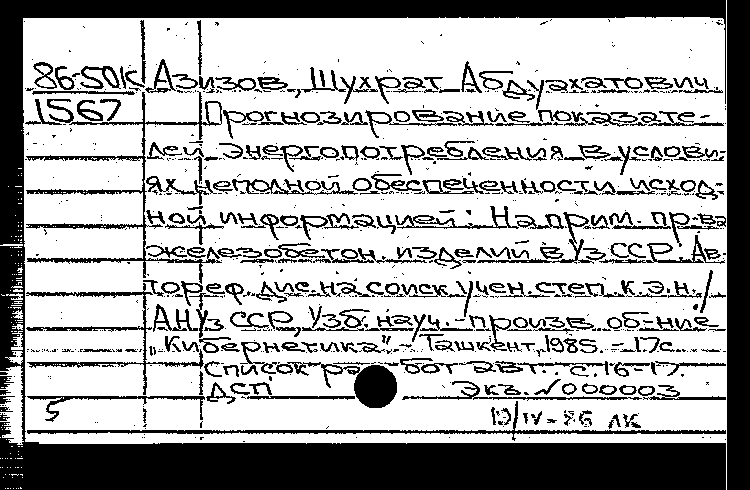 86-50К Азизов, Шухрат Абдуахатович.
1567 Прогнозирование показате-
лей энергопотребления в услови-
ях неполной обеспеченности исход-
ной информацией: На прим. пр-ва
железобетон. изделий в УзССР. Ав-
тореф. дис. на соиск учен. степ. к.э.н. /
АН УзССР, Узб. науч.-произв. об-ние
"Кибернетика". - Ташкент, 1985. - 17с.
Список работ авт.: с.16-17.
ДСП Экз. №000003
5
19/IV-86 ЛК